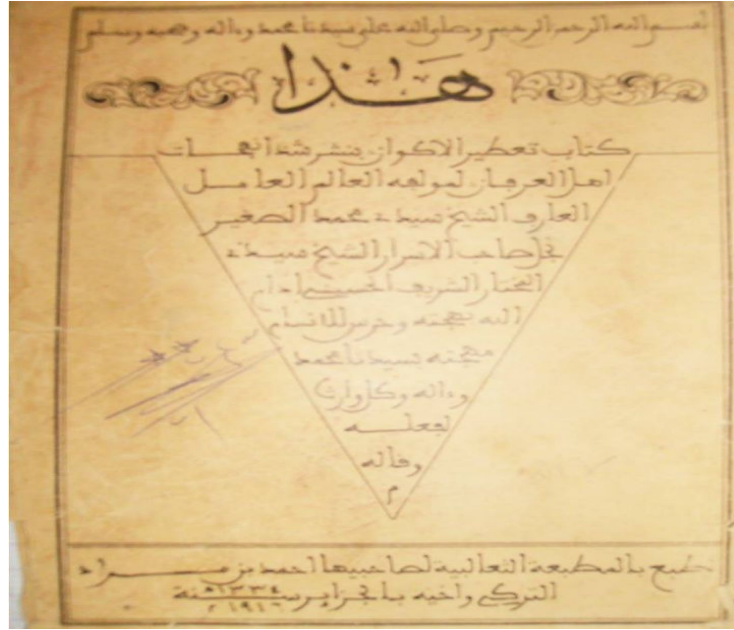 بسم الله الرحمن الرحيم وصلى الله على سيدنا محمد وءاله وصحبه وسلم
هذا
كتاب تعطير الاكوان بنشر شذا نفحات
اهل العرفان لمولفه العالم العامل
العارف الشيخ سيدي محمد الصغير
نجل صاحب الاسرار الشيخ سيدي
المختار الشريف الحسيني ادام
الله بهجته وحرس للانام
مهجته بسيدنا محمد
وءاله وكل وارث
لفعله
وقاله
م
طبع بالمطبعة الثعالبية لصاحبيها احمد بن مراد
التركي واخيه بالجزاير سنة ١٣٣٤ ه ١٩١٦ م